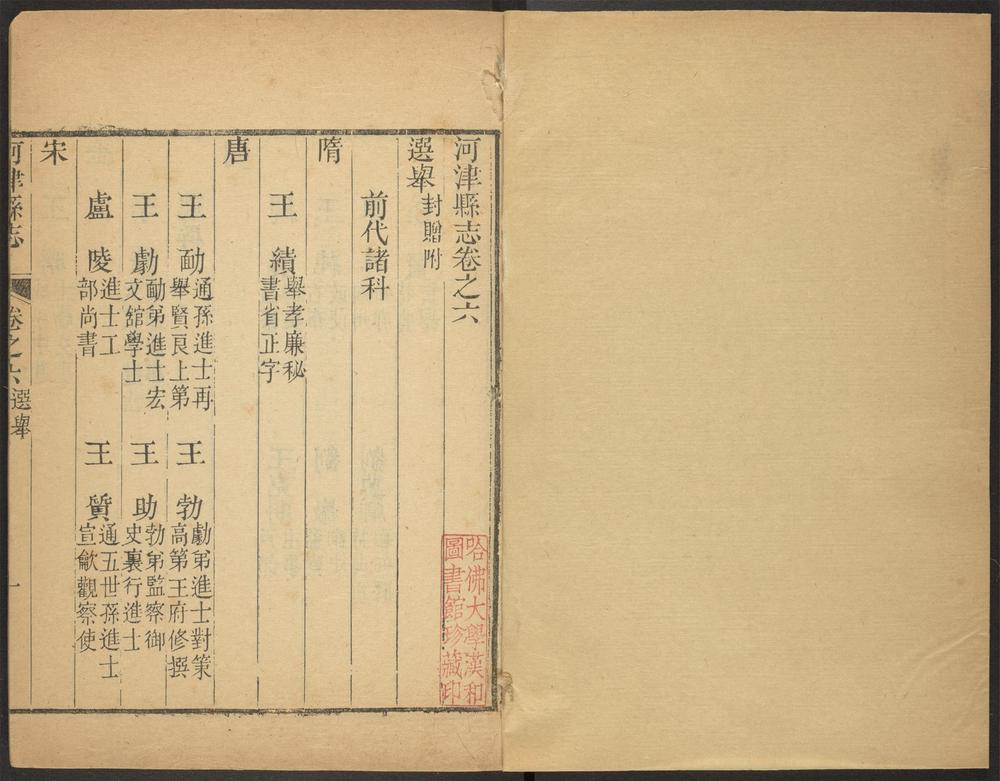 河津縣志卷之六
選舉封贈附
前代諸科
隋
王 績舉孝廉秘
書省正字
唐
王 勔通孫進士再
舉賢良上第
王 勃劇弟進士對策
高第王府修撰
王 劇勔弟進士宏
文舘學士
王 助勃弟監察御
史裏行進士
盧 陵進士工
部尚書
王 質通五世孫進士
宣歙觀察使
宋
河津縣志
卷之六選舉
一
哈佛大學漢和
圖書館珍藏印